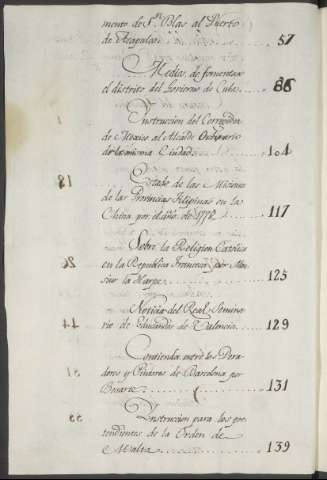 mento de S.n Blas, al Puerto
de Acapulco. 57
Medios de fomentar
el distrito del Govierno de Cuba. 86
Instruccion del Corregidor
de Mexico al Alcalde Ordinario
de la misma Ciudad. 104
Estado de las Misiones
de las Provincias Filipinas en la
China por el año de 1772. 117
Sobre la Religion Catolica
en la Republica Francesa, por Mon
sieur la Harpe. 125
Noticia del Real Semina
rio de Educandas de Valencia. 129
Contienda entre los Dora
dores y Pintores de Barcelona por
Bosarte. 131
Instruccion para los pre
tendientes de la Orden de
Malta. 139